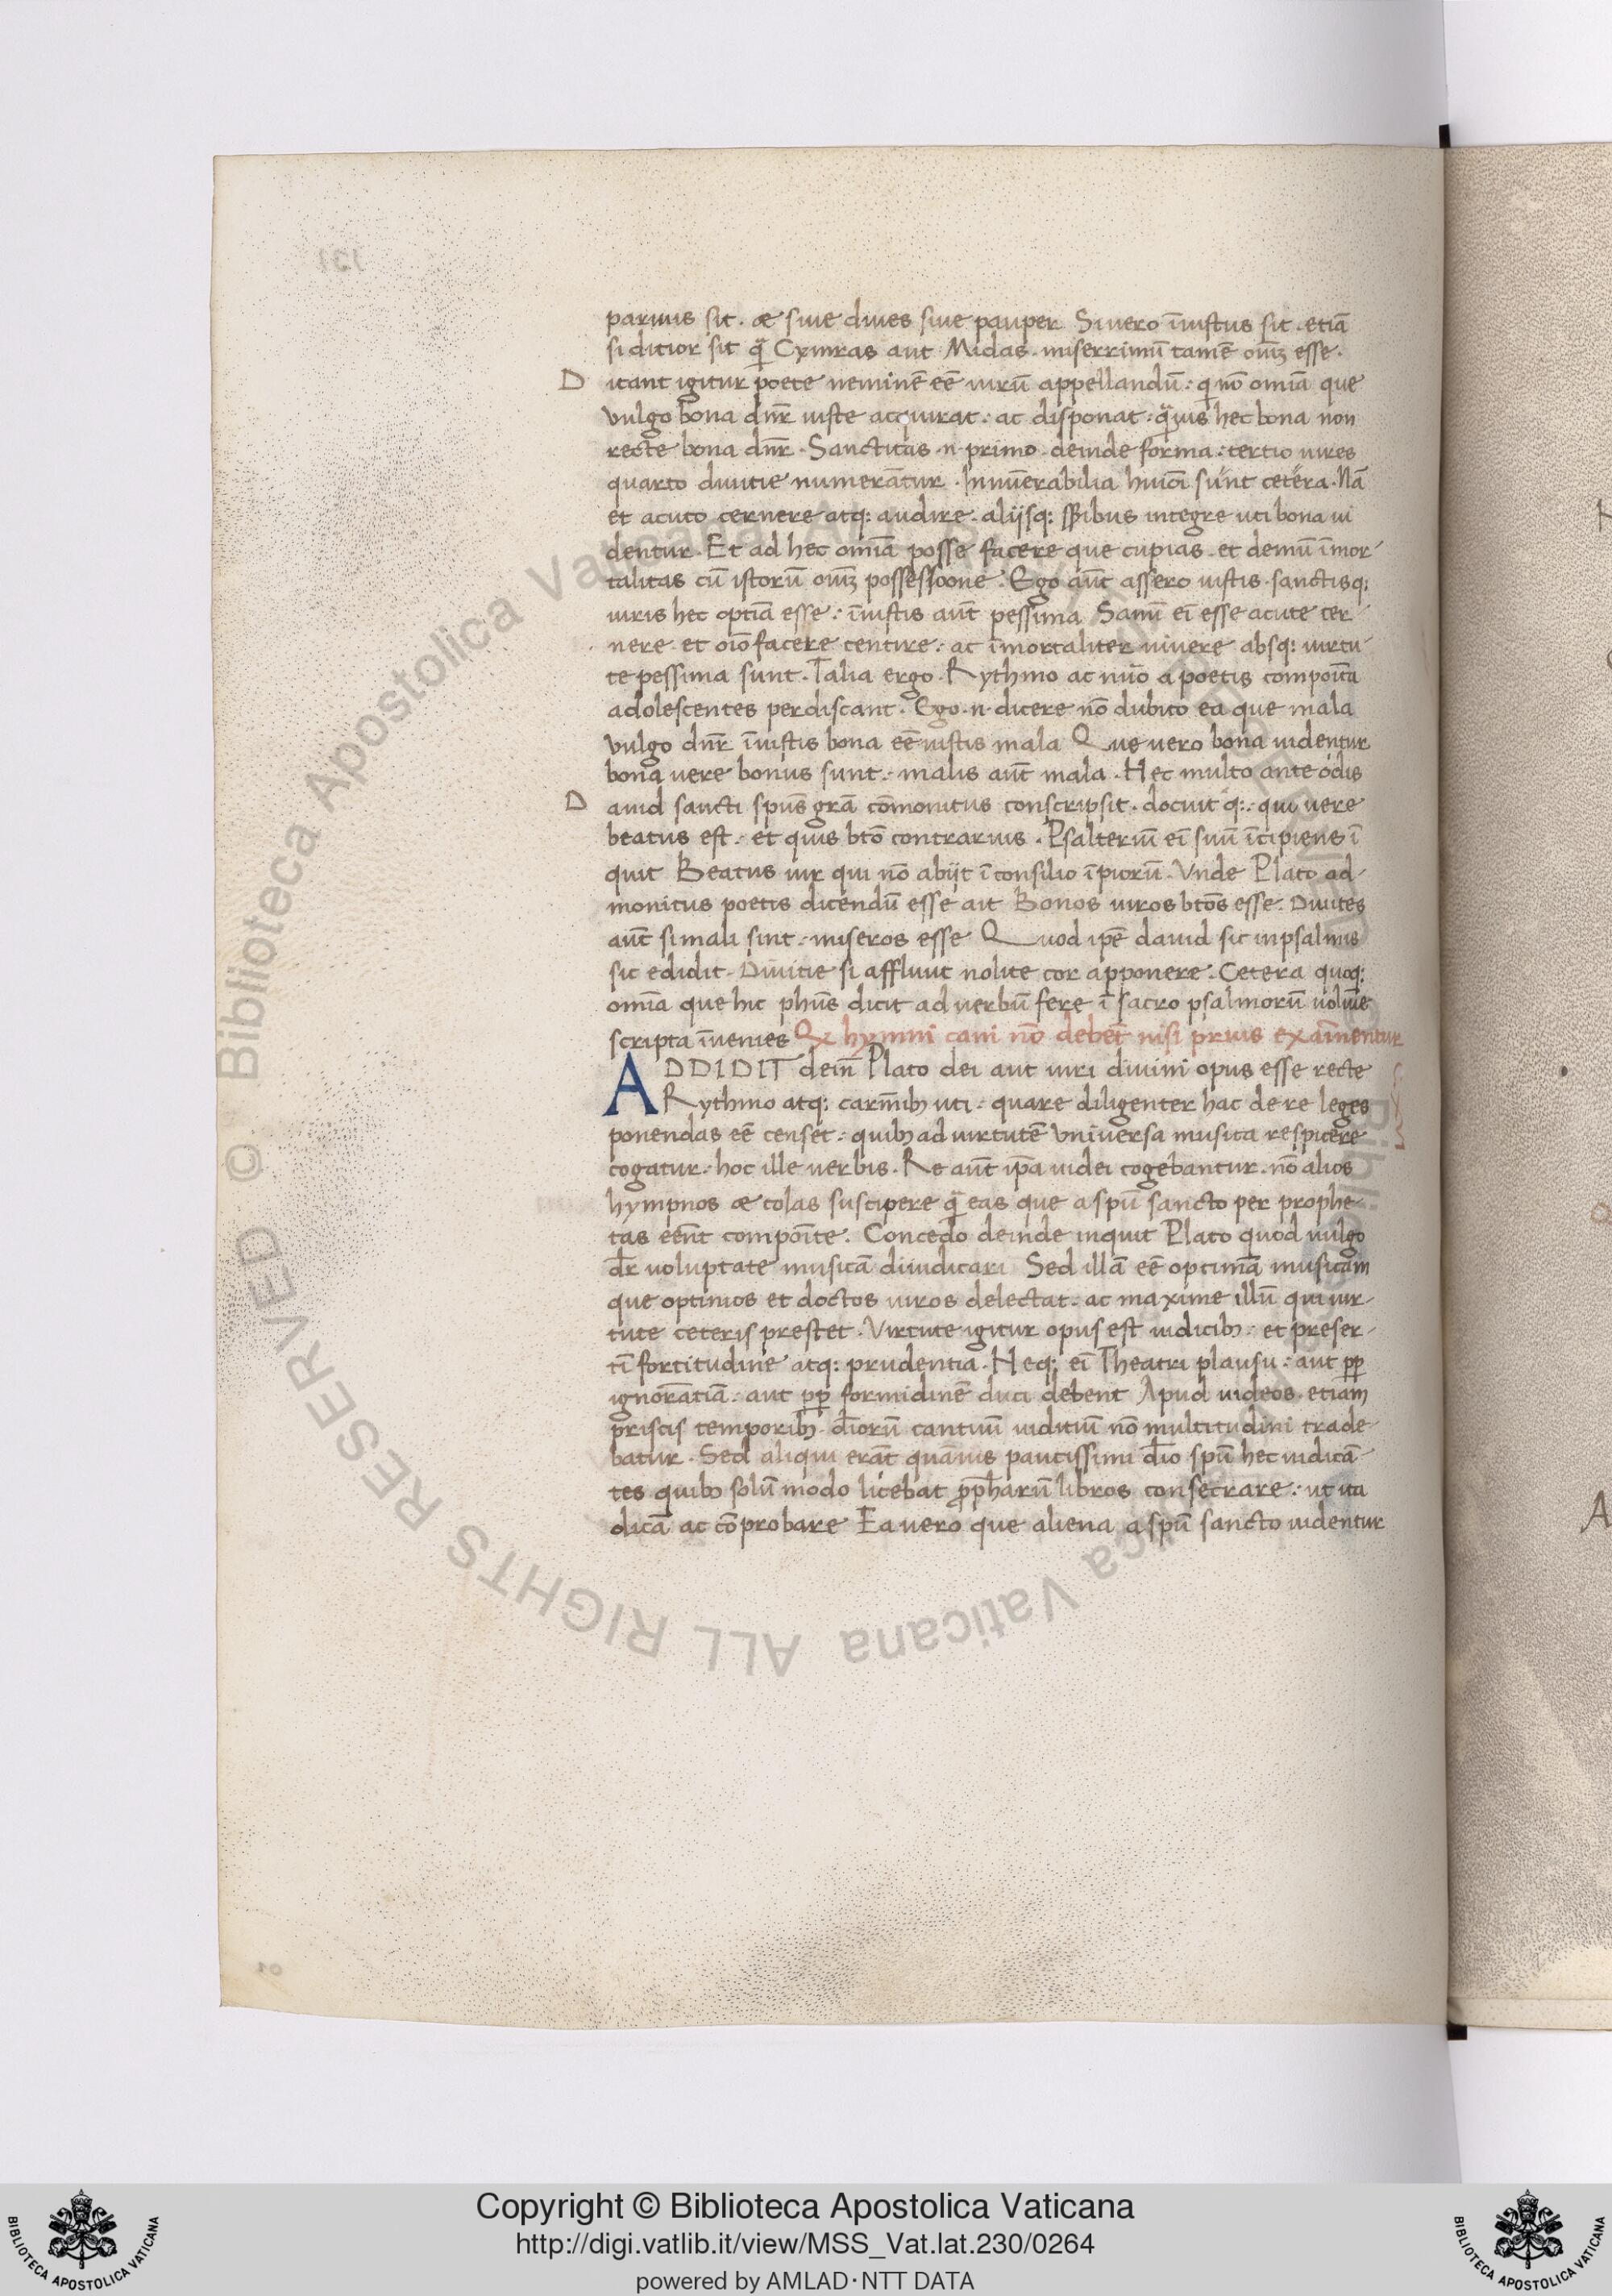 paruus sit. ac siue diues siue pauper Si uero iniustus sit. etiā
si ditior sit q̃ Cynras aut Midas. miserrimū tamē oīuʒ esse.
Dicant igitur poete neminē eē uirū appellandū: q nō omīa que
vulgo bona dnr̄ iuste acquirat: ac disponat: q̃uis hec bona non
recte bona dnr̄. Sanctitas .n. primo. deinde forma: tertio uires
quarto diuitie numerātur. Innūerabilia huiōi sunt cetera. Nā
et acuto cernere atq: audire. alijsq: integre uti bona ui
dentur. Et ad hec omīa posse facere que cupias. et demū īmor-
talitas cū istorū oīuʒ possessione. Ego aūt assero iustis. sanctisq:
uiris hec optīa esse: īiustis aūt pessima Sanū eī esse acute cer-
nere et oīo facere sentire: ac īmortaliter uiuere absq: uirtu-
te pessima sunt. Talia ergo Rythmo ac nūo a poetis compoīta
adolescentes perdiscant. Ego .n. dicere nō dubito ea que mala
vulgo dnr̄ īiustis bona eē iustis mala Que uero bona uidentur
bona uere bonus sunt: malis aūt mala. Hec multo ante
Dauid sancti spūs grā cōmonitus conscripsit. docuitq: qui uere
beatus est: et quis btō contrarius. Psalteriū eī suū īcipiens ī
quit Beatus uir qui nō abijt ī consilio īpiorū. Vnde Plato ad-
monitus poetis dicendū esse ait Bonos uiros btōs esse. Diuites
aūt si mali sint: miseros esse Quod ipē dauid sic in psalmis
sic edidit. Diuitie si affluūt nolite cor apponere. Cetera quoq:
omīa que hic phūs dicit ad uerbū fere ī sacro psalmorū uolūīe
scripta īuenies Q hymni cani nō debēt nisi prius exāīnentur
ADDIDIT dein̄ Plato dei aut uiri diuini opus esse recte
Rythmo atq: carmīb uti: quare diligenter hac de re leges
ponendas eē censet: quib ad uirtutē vniuersa musica respicere
cogatur. hoc ille uerbis. Re aūt ip̄a iudei cogebantur. nō alios
hympnos ac colas suscipere q̃ eas que a spū sancto per prophe-
tas eēnt compoīte. Concedo deinde inquit Plato quod uulgo
dr̄ uoluptate musicā diiudicari Sed illā eē optimā musicam
que optimos et doctos uiros delectat. ac maxime illū qui uir-
tute ceteris prestet. Virtute igitur opus est iudicib: et preser-
tī fortitudine atq: prudentia. Neq: eī Theatri plausu: aut pp
ignorātiā: aut pp formidinē duci debent Apud iudeos. etiam
priscis temporib dīorū cantuū iuditiū nō multitudini trade-
batur. Sed aliqui erāt quāuis paucissimi dīo spū hec iudicā-
tes quib solū modo licebat prophārū libros consecrare: ut ita
dicā ac cōprobare Ea uero que aliena a spū sancto uidentur
Copyright © Biblioteca Apostolica Vaticana
http://digi.vatlib.it/view/MSS_Vat.lat.230/0264
powered by AMLAD·NTT DATA